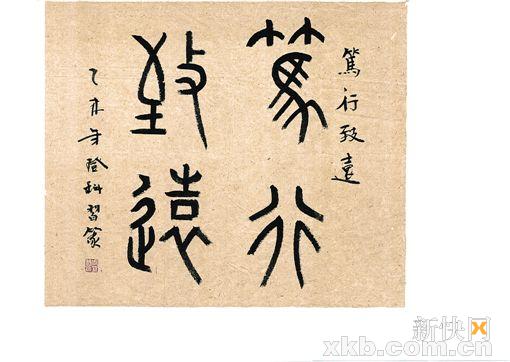 篤行致遠
篤行
致遠
乙未年登科習篆
新快网
xkb.com.cn